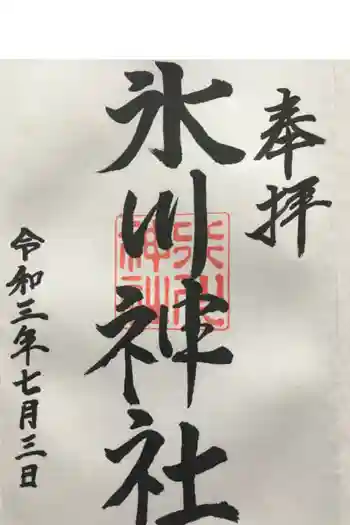 奉拝
氷川神社
氷川
神社
令和三年七月三日